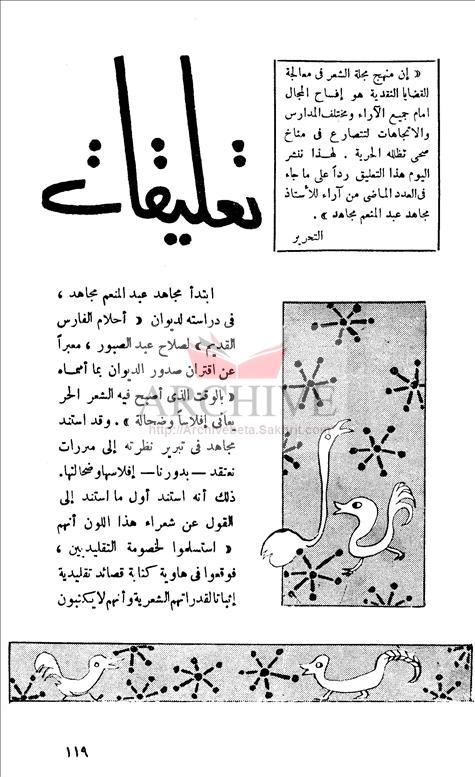 تعليقات
« إن منهج مجلة الشعر فى معالجة
القضايا النقدية هو إفساح المجال
امام جميع الآراء ومختلف المدارس
والاتجاهات لتتصارع فى مناخ
صحى تظلله الحرية . لهذا ننشر
اليوم هذا التعليق رداً على ما جاء
فى العدد الماضى من آراء للأستاذ
مجاهد عبد المنعم مجاهد » .
التحرير
ابتدأ مجاهد عبد المنعم مجاهد ،
فى دراسته لديوان « أحلام الفارس
القديم » لصلاح عبد الصبور ، معبراً
عن اقتران صدور الديوان بما أسماه
« بالوقت الذى أصبح فيه الشعر الحر
يعانى إفلاساً وضحالة » . وقد استند
مجاهد فى تبرير نظرته إلى مبررات
نعتقد – بدورنا – إفلاسها وضحالتها.
ذلك أنه استند أول ما استند إلى
القول عن شعراء هذا اللون أنهم
« استسلموا لخصومة التقليديين ،
فوقعوا فى هاوية كتابة قصائد تقليدية
إثباتا لقدراتهم الشعرية وأنهم لا يكتبون
ARCHIVE
http://Archivebeta.Sakhrit.com
١١٩